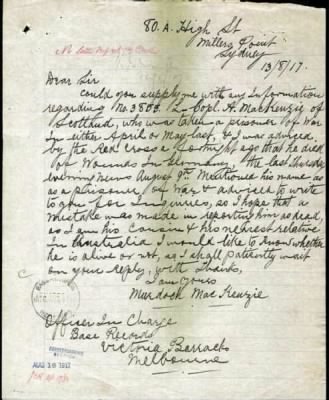 80. A. High St
Millers Point
Sydney
13/8/17.
Dear Sir
Could you supply me with any Information
regarding No 3803. L. Copl. A. MacKenzie of
Scotland, who was taken a prisoner of War
In either April or May last, & I was advised
by the Red Cross a ago that he died
of Wounds In Germany, the last Thursday
evening news August 9th Mentioned his name as
as a prisoner of War & advised to write
to you for Inquiries, so I hope that a
mistake was made in reporting him as dead,
as I am his Cousin & his nearest relative
In Australia I would like to know whether
he is alive or not, so I shall patiently wait
on your reply, with thanks,
I am yours
Murdock MacKenzie
Officer In Charge
Base Records
Victoria Barracks
Melbourne
AUG 16 1917